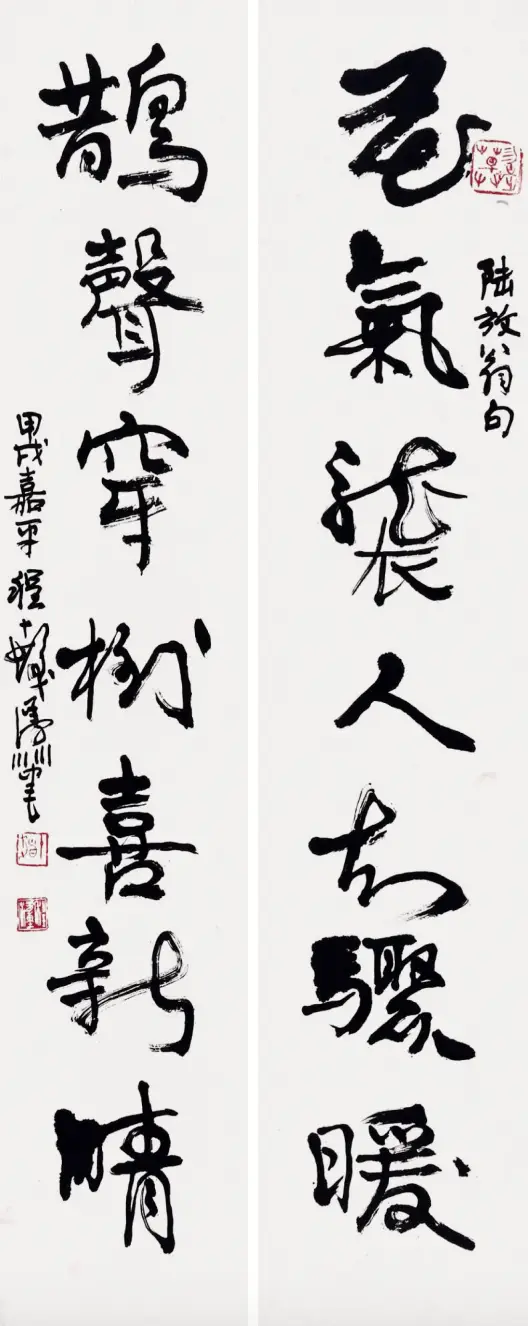 陸放翁句
花氣襲人知驟暖
鵲聲穿樹喜新晴
甲戌嘉平程十髮漫筆